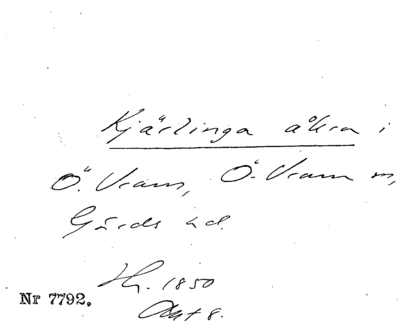 Kjärlinga åkra i
Ö. Vram, Ö. Vram sn,
Gärds hd.
Hr. 1850
Akt 8.
Nr 7792.